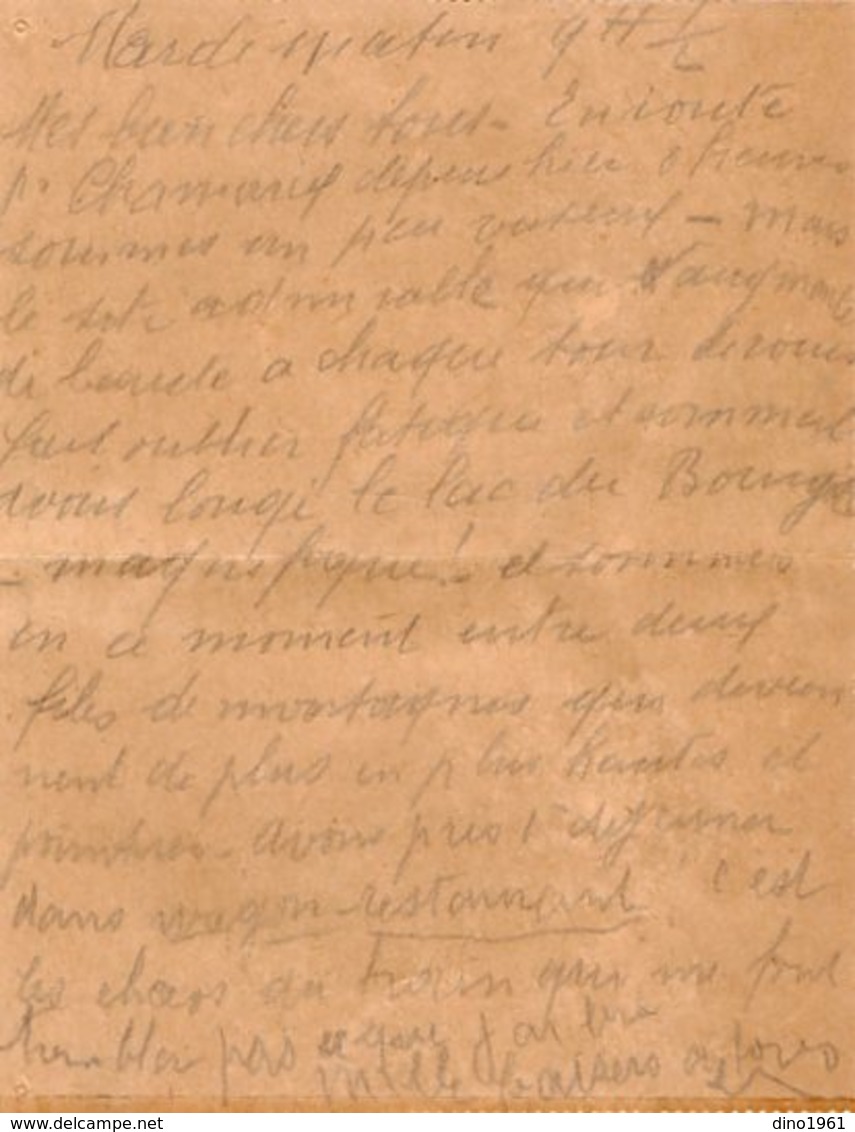 Mardi matin 9H 1/2
Mes bien chers tous - En route
pr Chamonix depuis hier 8 heures
sommes un peu vaseux - mais
le site admirable qui augmente
de beauté a chaque tour de roues
fait oublier fatigue et sommeil
avons longé le lac du Bourget
- magnifique! et sommes
en ce moment entre deux
files de montagnes qui devien
nent de plus en plus hautes et
pointues - avons pris 1er dejeuner
dans wagon-restaurant c'est
les chaos du train qui me font
trembler pas ce que j'ai bu
mille baisers a tous
www.delcampe.net
dino1961